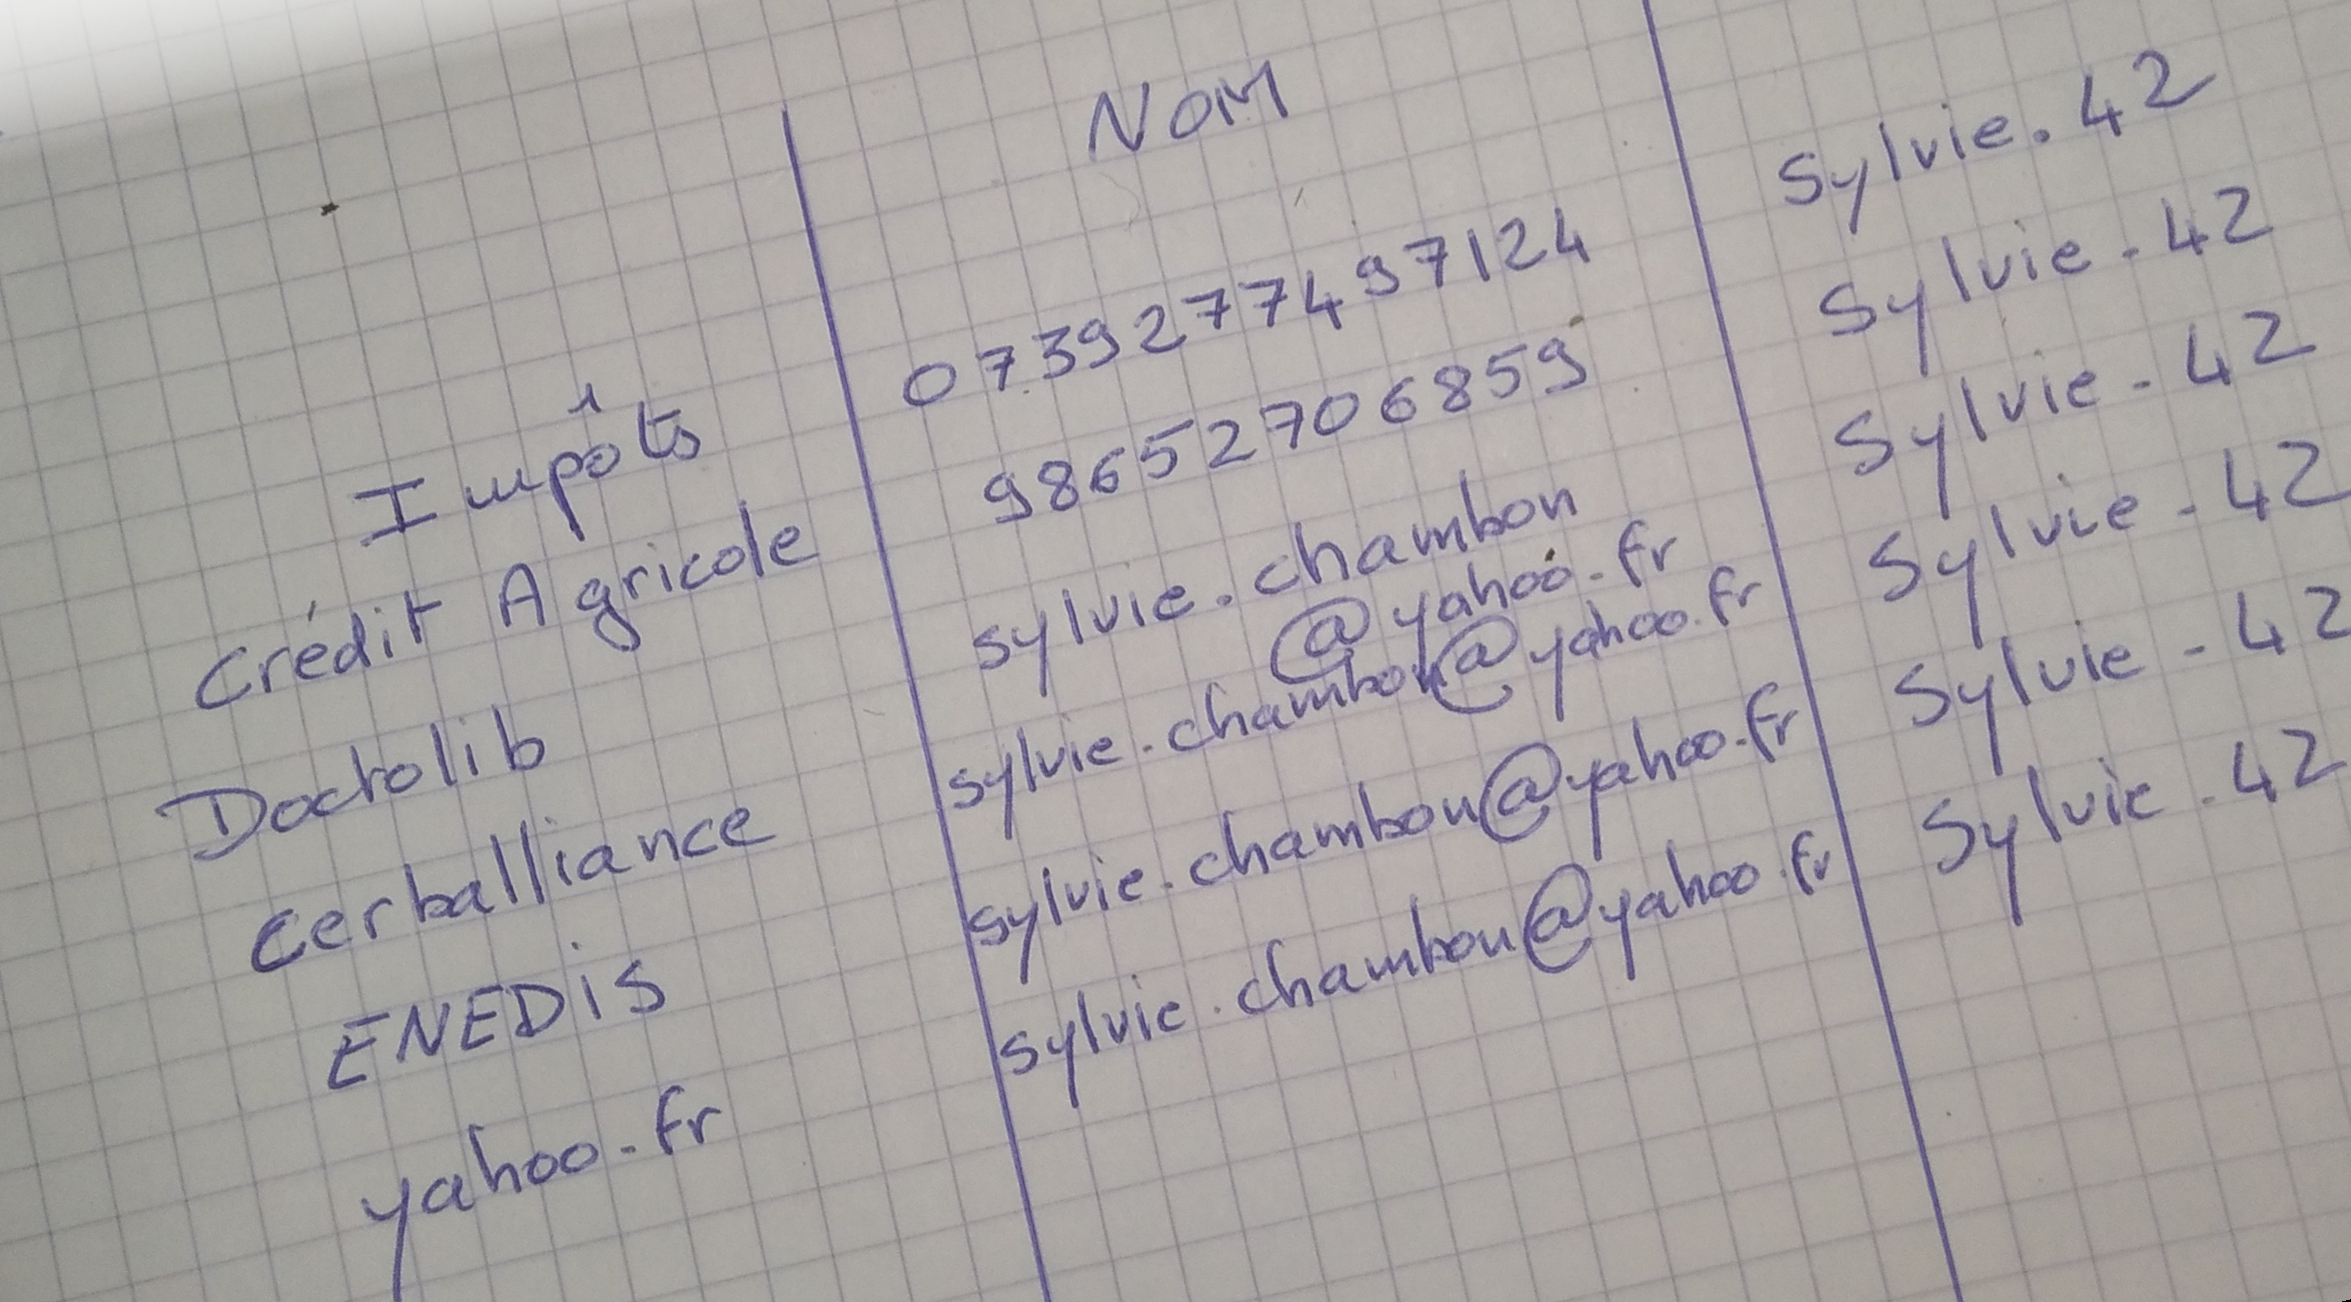 NOM
Impôts 0739277497124 Sylvie.42
Crédit Agricole 98652706859 Sylvie-42
Doctolib sylvie.chambon Sylvie-42
@yahoo.fr
Cerballiance sylvie.chambon@yahoo.fr Sylvie-42
ENEDiS sylvie.chambon@yahoo.fr Sylvie-42
yahoo.fr sylvie.chambon@yahoo.fr Sylvie-42